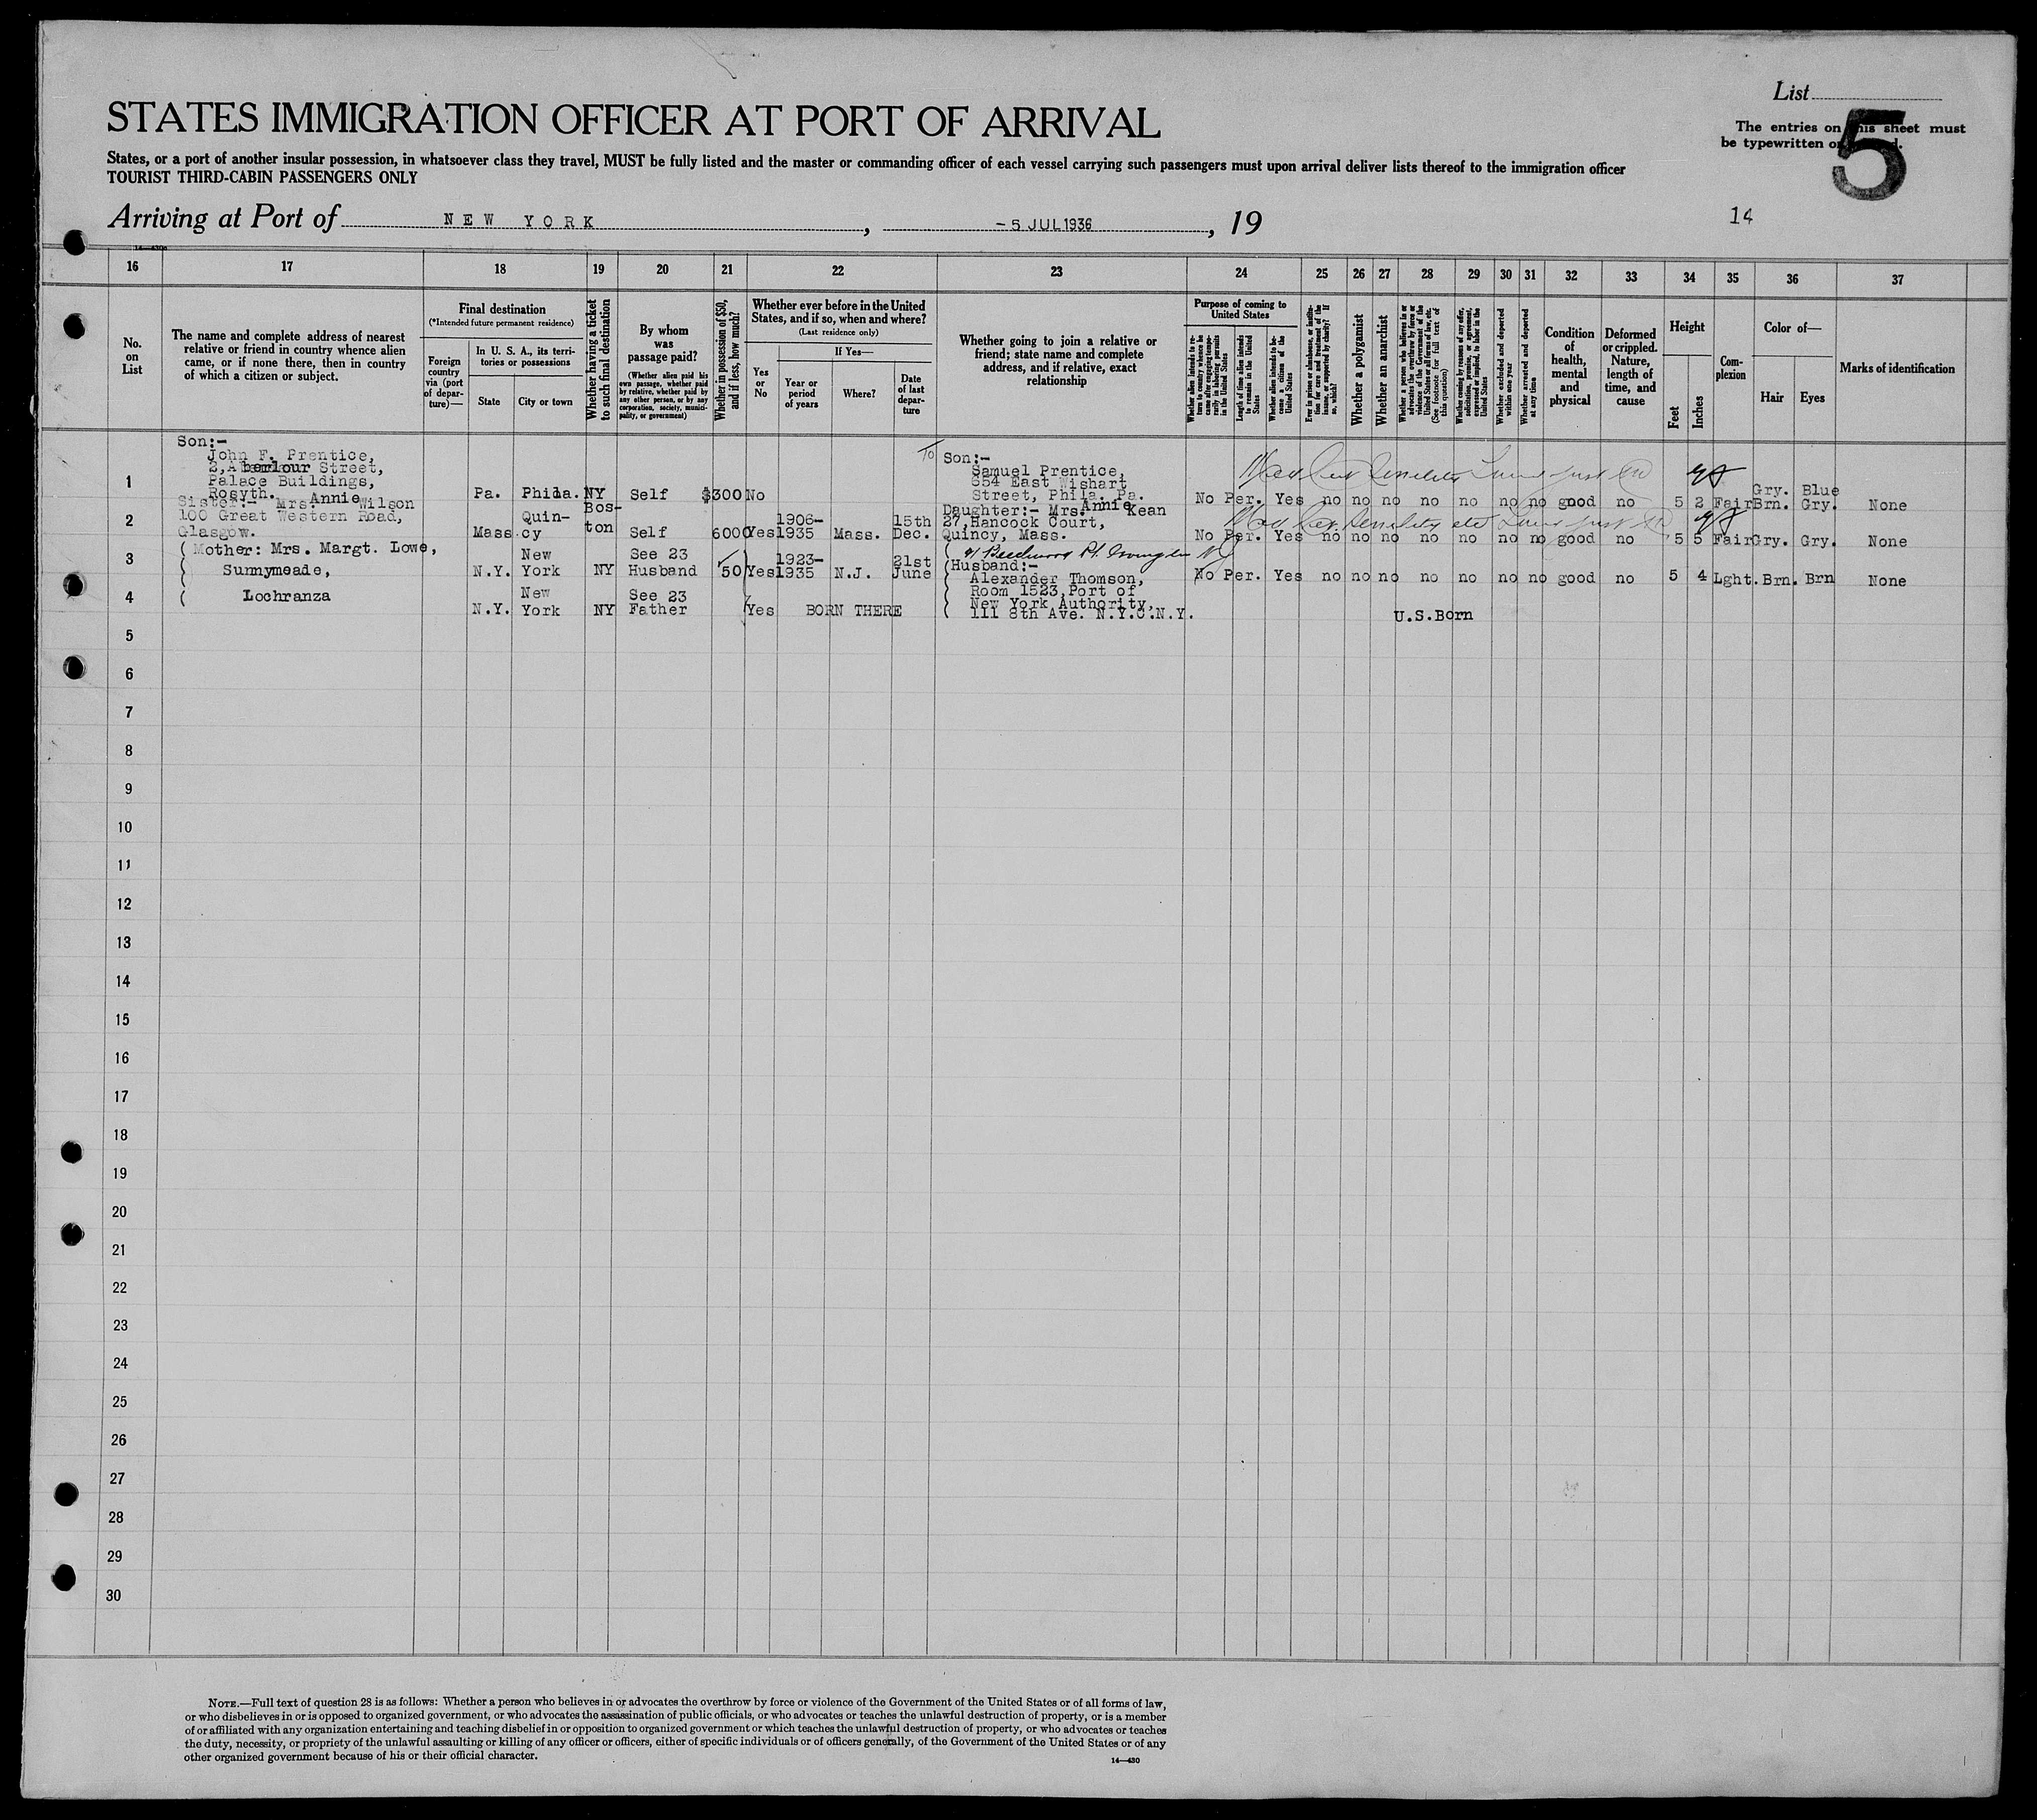 List
5
The entries on this sheet must
be typewritten or
STATES IMMIGRATION OFFICER AT PORT OF ARRIVAL
States, or a port of another insular possession, in whatsoever class they travel, MUST be fully listed and the master or commanding officer of each vessel carrying such passengers must upon arrival deliver lists thereof to the immigration officer
TOURIST THIRD-CABIN PASSENGERS ONLY
Arriving at Port of NEW YORK, -5 JUL 1936, 19
14
16 17 18 19 20 21 22 23 24 25 26 27 28 29 30 31 32 33 34 35 36 37
No. on List
The name and complete address of nearest
relative or friend in country whence alien
came, or if none there, then in country
of which a citizen or subject.
Final destination
(*Intended future permanent residence)
Foreign country via (port of departure)—
In U. S. A., its territories or possessions
State
City or town
Whether having a ticket to such final destination
By whom was passage paid?
(Whether alien paid his own passage, whether paid by relative, whether paid by any other person, or by any corporation, society, municipality, or government)
Whether in possession of $50, and if less, how much?
Whether ever before in the United States, and if so, when and where?
(Last residence only)
Yes or No
If Yes—
Year or period of years
Where?
Date of last departure
Whether going to join a relative or
friend; state name and complete
address, and if relative, exact
relationship
Purpose of coming to United States
Whether alien intends to return to country whence he came after engaging temporarily in laboring pursuits in the United States
Length of time alien intends to remain in the United States
Whether alien intends to become a citizen of the United States
Ever in prison or almshouse, or institution for care and treatment of the insane, or supported by charity? If so, which?
Whether a polygamist
Whether an anarchist
Whether a person who believes in or advocates the overthrow by force or violence of the Government of the United States or all forms of law, etc. (See footnote for full text of this question)
Whether coming by reason of any offer, solicitation, promise, or agreement, expressed or implied, to labor in the United States
Whether excluded and deported within one year
Whether arrested and deported at any time
Condition of health, mental and physical
Deformed or crippled. Nature, length of time, and cause
Height
Feet
Inches
Complexion
Color of—
Hair
Eyes
Marks of identification
1
Son:-
John F. Prentice,
2, Aberlour Street,
Palace Buildings,
Rosyth.
Pa. Phila. NY Self $300 No
To
Son:-
Samuel Prentice,
854 East Wishart
Street, Phila. Pa.
No Per. Yes no no no no no no no good no 5 2 Fair Gry. Brn. Blue Gry. None
2
Sister:- Mrs. Annie Wilson
100 Great Western Road,
Glasgow.
Mass Quin-cy Bos-ton Self 600 Yes 1906-1935 Mass. 15th Dec.
Daughter:- Mrs. Annie Kean
27, Hancock Court,
Quincy, Mass.
No Per. Yes no no no no no no no good no 5 5 Fair Gry. Gry. None
3
(Mother: Mrs. Margt. Lowe,
Sunnymeade,
Lochranza
N.Y. New York NY See 23 Husband 50 Yes 1923-1935 N.J. 21st June
41 Beechwood Pl. Irvington NJ
(Husband:-
Alexander Thomson,
Room 1523, Port of
New York Authority,
111 8th Ave. N.Y.C.N.Y.
No Per. Yes no no no no no no no good no 5 4 Lght. Brn. Brn None
4
N.Y. New York NY See 23 Father Yes BORN THERE
U.S.Born
5
6
7
8
9
10
11
12
13
14
15
16
17
18
19
20
21
22
23
24
25
26
27
28
29
30
NOTE.—Full text of question 28 is as follows: Whether a person who believes in or advocates the overthrow by force or violence of the Government of the United States or of all forms of law,
or who disbelieves in or is opposed to organized government, or who advocates the assassination of public officials, or who advocates or teaches the unlawful destruction of property, or is a member
of or affiliated with any organization entertaining and teaching disbelief in or opposition to organized government or which teaches the unlawful destruction of property, or who advocates or teaches
the duty, necessity, or propriety of the unlawful assaulting or killing of any officer or officers, either of specific individuals or of officers generally, of the Government of the United States or of any
other organized government because of his or their official character.
14—430